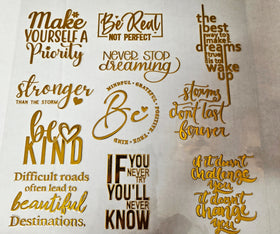 Make
YOURSELF A
Priority
Be Real
NOT PERFECT
the
best
way to
make
dreams
true
is to
wake
up
NEVER STOP
dreaming
stronger
THAN THE STORM
MINDFUL • GRATEFUL • POSITIVE • TRUE • KIND •
Be
storms
don't last
forever
be
KIND
Difficult roads
often lead to
beautiful
Destinations.
IF YOU
NEVER TRY
YOU'LL
NEVER
KNOW
if it don't
challenge
you
it don't
change
you